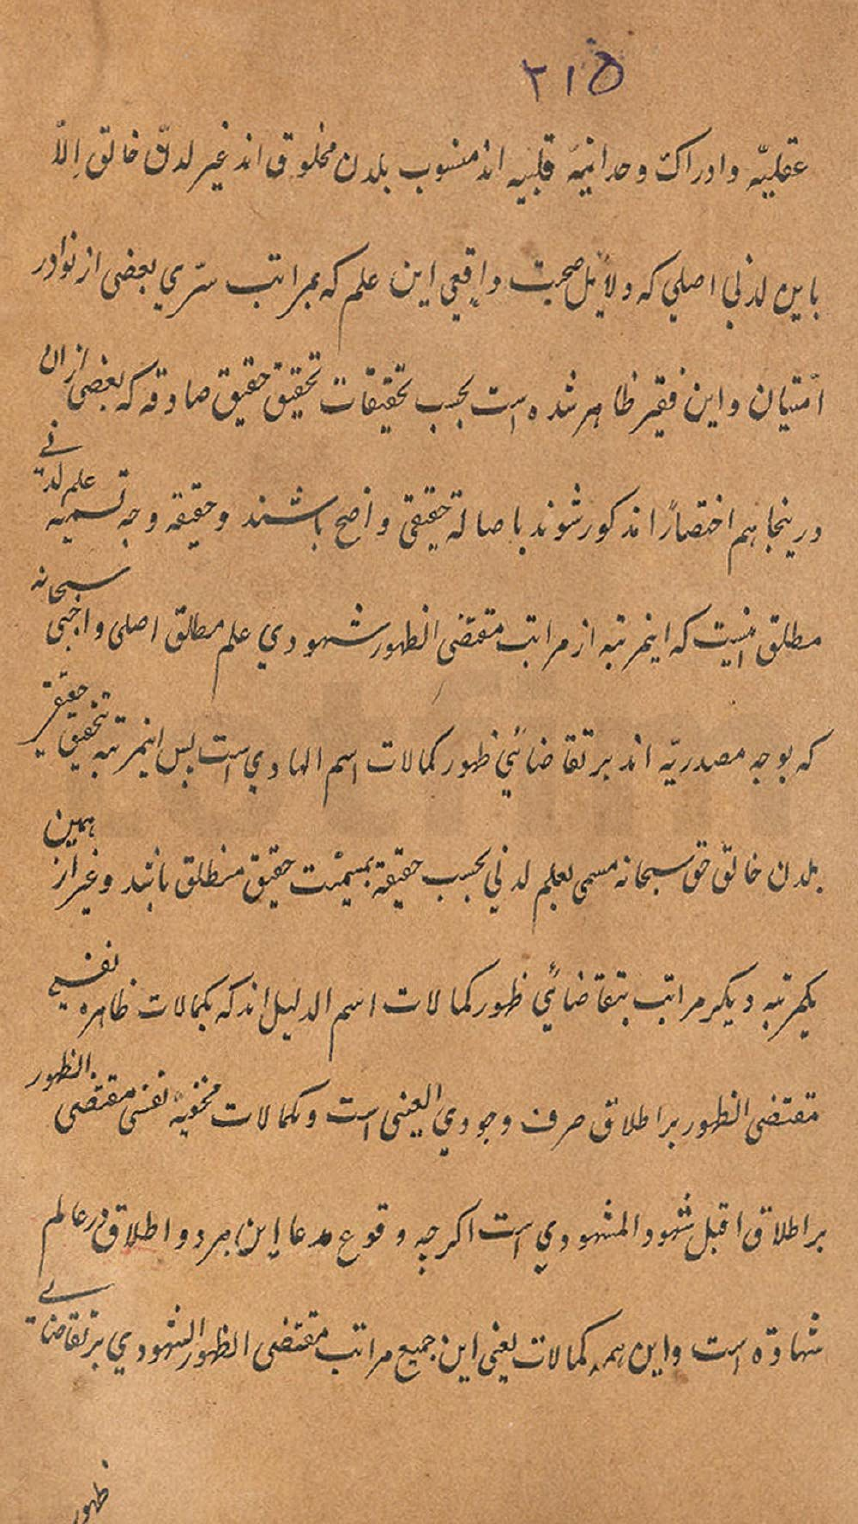 ۲۱۵
عقلیّه و ادراک وحدانیهٔ قلبیه اند منسوب بلدن مخلوق اند غیر لدنّ خالق اِلّا
باین لدنی اصلی که دلایل صحت واقعی این علم که بمراتب سرّی بعضی از نوادر
اُمتیان و این فقیر ظاهر شده است بحسب تحقیقات تحقیق حقیق صادقه که بعضی ازان
درینجا هم اختصارًا مذکور شوند باصالة حقیقی واضح باشند و حقیقه وجه تسمیه علم لدنی
مطلق اینست که اینمرتبه از مراتب مقتضی الظهور شهودی علم مطلق اصلی واجبی سبحانه
که بوجه مصدریّه اند بر تقاضائی ظهور کمالات اسم الهادی است پس اینمرتبه تحقیق حقیقی
بلدن خالق حق سبحانه مسمی بعلم لدنی بحسب حقیقة حقیق منطلق باشند و غیر از همین
یکمرتبه دیگر مراتب بتقاضائی ظهور کمالات اسم الدلیل اند که بکمالات ظاهره نفسی
مقتضی الظهور بر اطلاق صرف وجودی العینی است و بکمالات مخفیهٔ نفسی مقتضی الظهور
بر اطلاق اقبل شهود المشهودی است اگرچه وقوع مدعا این هر دو اطلاق در عالم
شهادة است و این همه کمالات یعنی این جمیع مراتب مقتضی الظهور الشهودی بر تقاضائی
ظهور